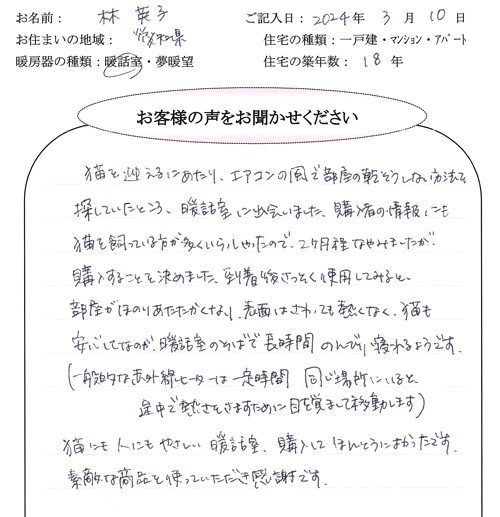 お名前： 林 英子 ご記入日：2024年 3月 10日
お住まいの地域： 愛知県 住宅の種類：一戸建・マンション・アパート
暖房器の種類：暖話室・夢暖望 住宅の築年数：18年
お客様の声をお聞かせください
猫を迎えるにあたり、エアコンの風で部屋の乾そうしない方法を
探していたところ、暖話室に出会いました。購入者の情報にも
猫を飼っている方が多くいらしゃたので、2ヶ月程なやみましたが
購入することを決めました。到着後さっそく使用してみると、
部屋がほのりあたたかくなり、表面はさわっても熱くなく、猫も
安心してなのか、暖話室のそばで長時間 のんびり寝れるようです。
(一般的な赤外線ヒーターは一定時間 同じ場所にいると、
途中で熱さをさますために目を覚まして移動します)
猫にも人にもやさしい暖話室、購入してほんとうによかったです。
素敵な商品を使っていただき感謝です。